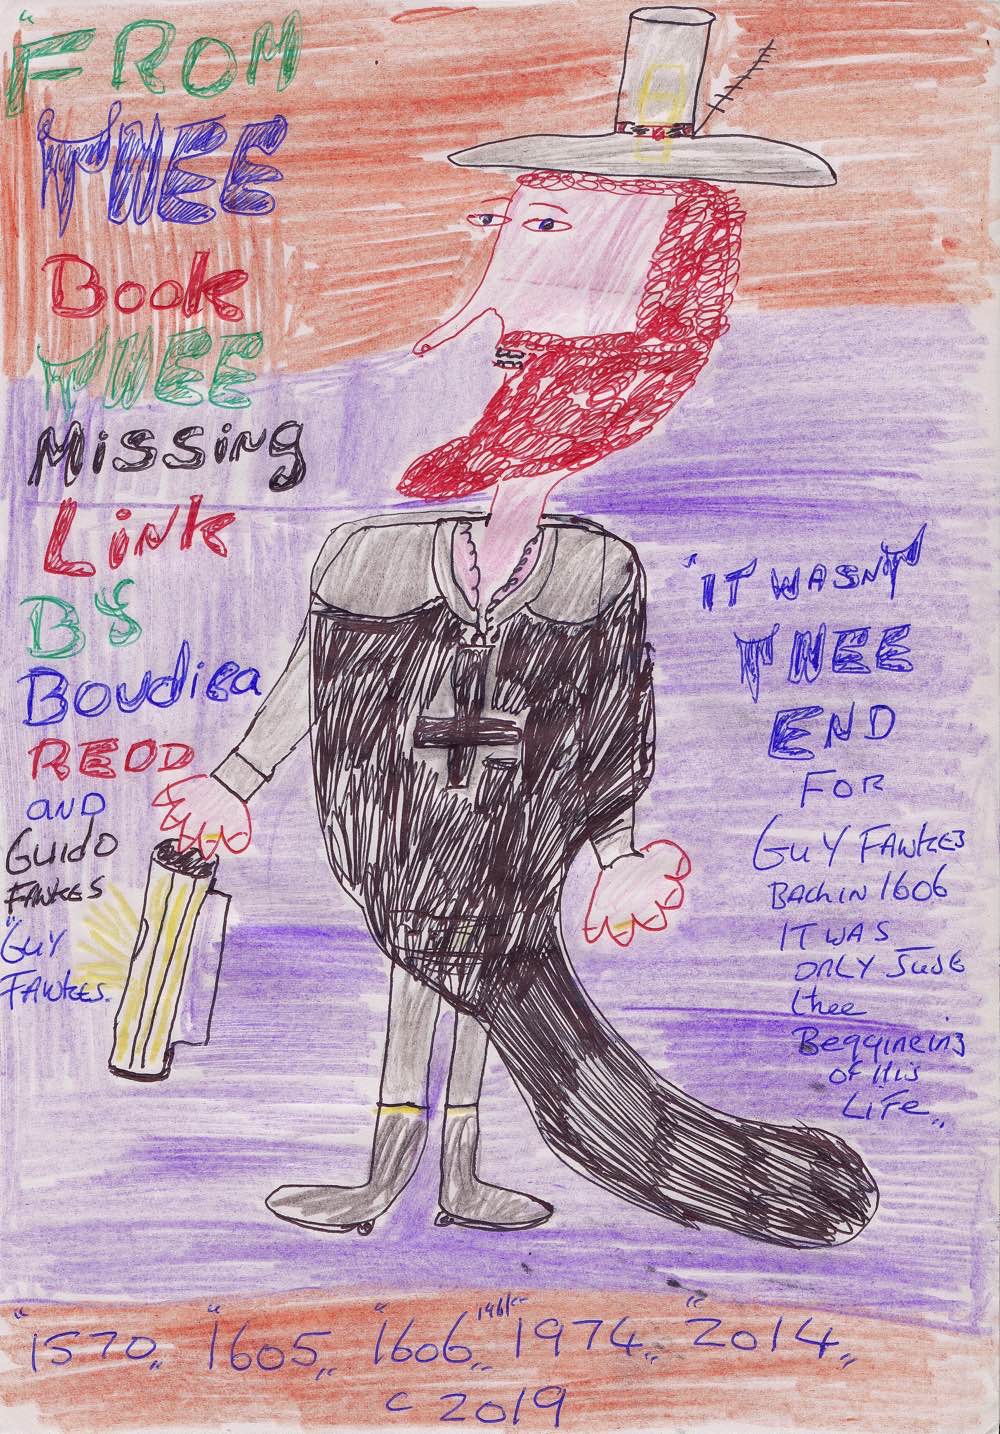 "FROM
THEE
Book
THEE
Missing
Link
By
Boudica
REDD
AND
Guido
FAWKES
"GUY
FAWKES.
"IT WASN'T
THEE
END
FOR
GUY FAWKES
BACK IN 1606
IT WAS
ONLY JUSE
thee
Beggineing
of His
LiFe„
"1570„ "1605„ "1606„ 1961"" 1974„ "2014„
c 2019